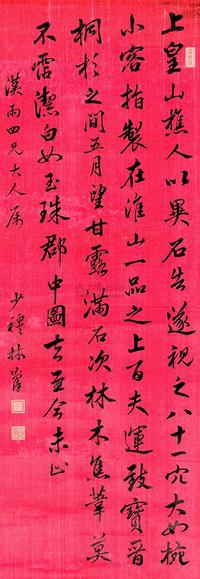 上皇山樵人以異石告遂視之八十一穴大如椀
小容指製在淮山一品之上百夫運致寶晉
桐杉之間五月望甘露滿石次林木焦葦莫
不霑潔白如玉珠郡中圖去至今未止
漢雨四兄大人屬
少穆林